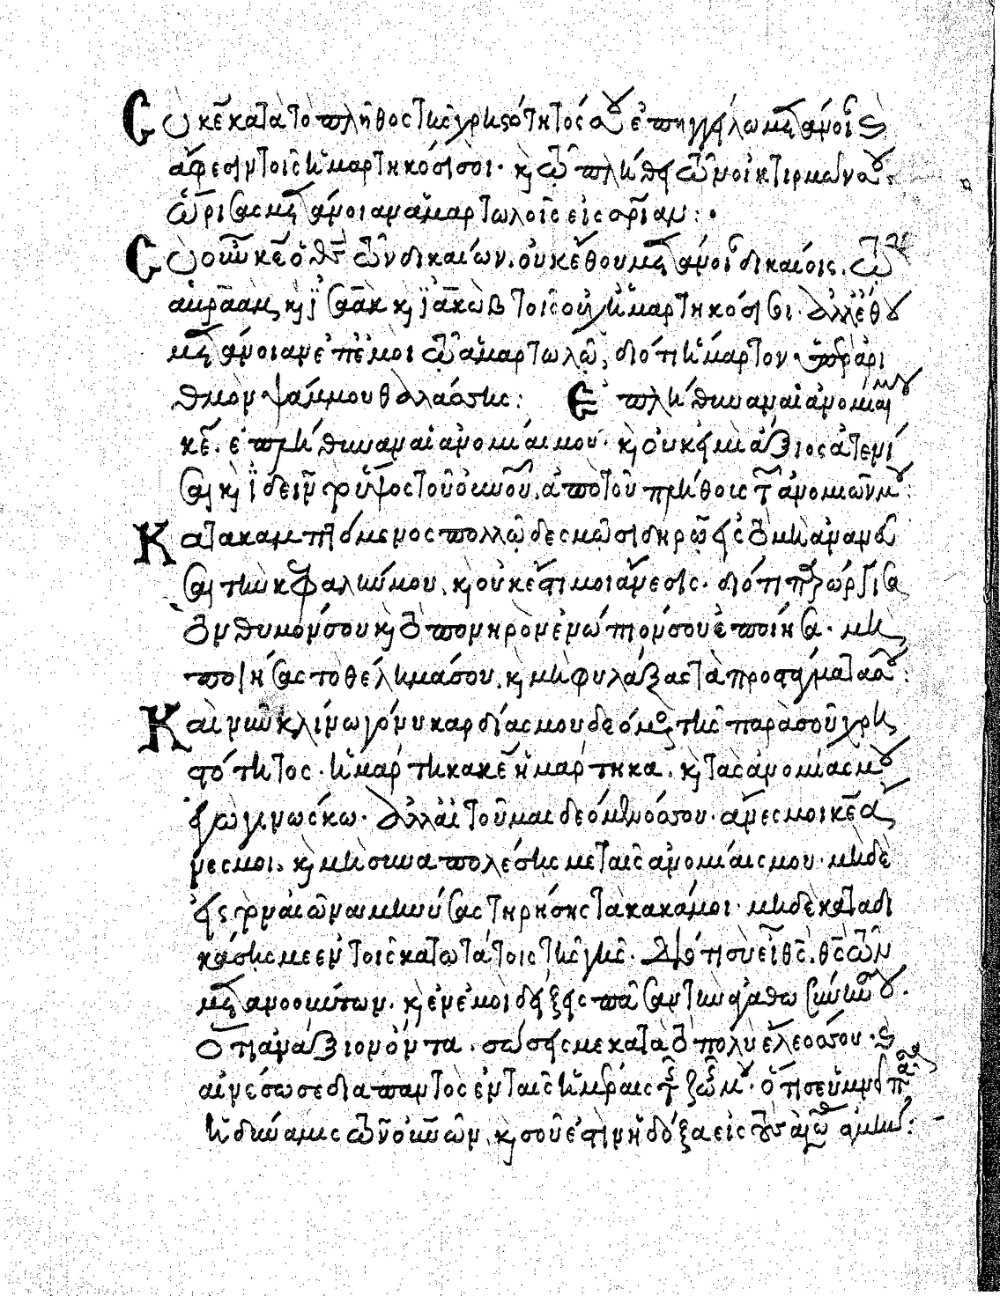 Σὺ κε κατὰ τὸ πλῆθος τῆς χρηστότητός σου ἐπηγγείλω μετανοίας
ἄφεσιν τοῖς ἡμαρτηκόσι σοι· κ τῷ πλήθει τῶν οἰκτιρμῶν σου
ὥρισας μετάνοιαν ἁμαρτωλοῖς εἰς σριαν:·
Σὺ οὖν κε ὁ θς τῶν δικαίων, οὐκ ἔθου μετάνοιαν δικαίοις, τῷ
αβρααμ, κ ϊσαακ κ ϊακωβ τοῖς οὐχ ἡμαρτηκόσι σοι· ἀλλ' ἔθου
μετάνοιαν ἐπ' ἐμοὶ τῷ ἁμαρτωλῷ, διότι ἥμαρτον ὑπὲρ ἀρι
θμὸν ψάμμου θαλάσσης: Ἐπλήθυναν αἱ ἀνομίαι μου
κε. ἐπλήθυναν αἱ ἀνομίαι μου· κ οὐκ εἰμὶ ἄξιος ἀτενί
σαι κ ϊδεῖν τὸ ὕψος τοῦ οὐνοῦ, ἀπὸ τοῦ πλήθους τῶν ἀνομιῶν μου:
Κατακαμπτόμενος πολλῷ δεσμῷ σιδηρῷ εἰς τὸ μὴ ἀνανεῦ
σαι τὴν κεφαλήν μου, κ οὐκ ἔστι μοι ἄνεσις· διότι παρώργισα
τὸν θυμόν σου κ τὸ πονηρὸν ἐνώπιόν σου ἐποίησα· μὴ
ποιήσας τὸ θέλημά σου, κ μὴ φυλάξας τὰ προστάγματά σου:
Καὶ νῦν κλίνω γόνυ καρδίας μου δεόμενος τῆς παρὰ σοῦ χρη
στότητος· ἡμάρτηκα κε ἡμάρτηκα, κ τὰς ἀνομίας μου
ἐγὼ γινώσκω· ἀλλ' αἰτοῦμαι δεόμενός σου· ἄνες μοι κε ἄ
νες μοι, κ μὴ συναπολέσῃς με ταῖς ἀνομίαις μου· μηδὲ
εἰς τὸν αἰῶνα μηνίσας τηρήσῃς τὰ κακά μοι· μηδὲ καταδι
κάσῃς με ἐν τοῖς κατωτάτοις τῆς γῆς· Διότι σὺ εἶ θς, θς τῶν
μετανοούντων· κ ἐν ἐμοὶ δείξεις πᾶσαν τὴν ἀγαθωσύνην σου·
ὅτι ἀνάξιον ὄντα, σώσεις με κατὰ τὸ πολὺ ἔλεός σου· κ
αἰνέσω σε διαπαντὸς ἐν ταῖς ἡμέραις τῆς ζωῆς μου· ὅτι σὲ ὑμνεῖ πᾶσα
ἡ δύναμις τῶν οὐνῶν, κ σοῦ ἐστιν ἡ δόξα εἰς τοὺς αἰῶνας ἀμήν: